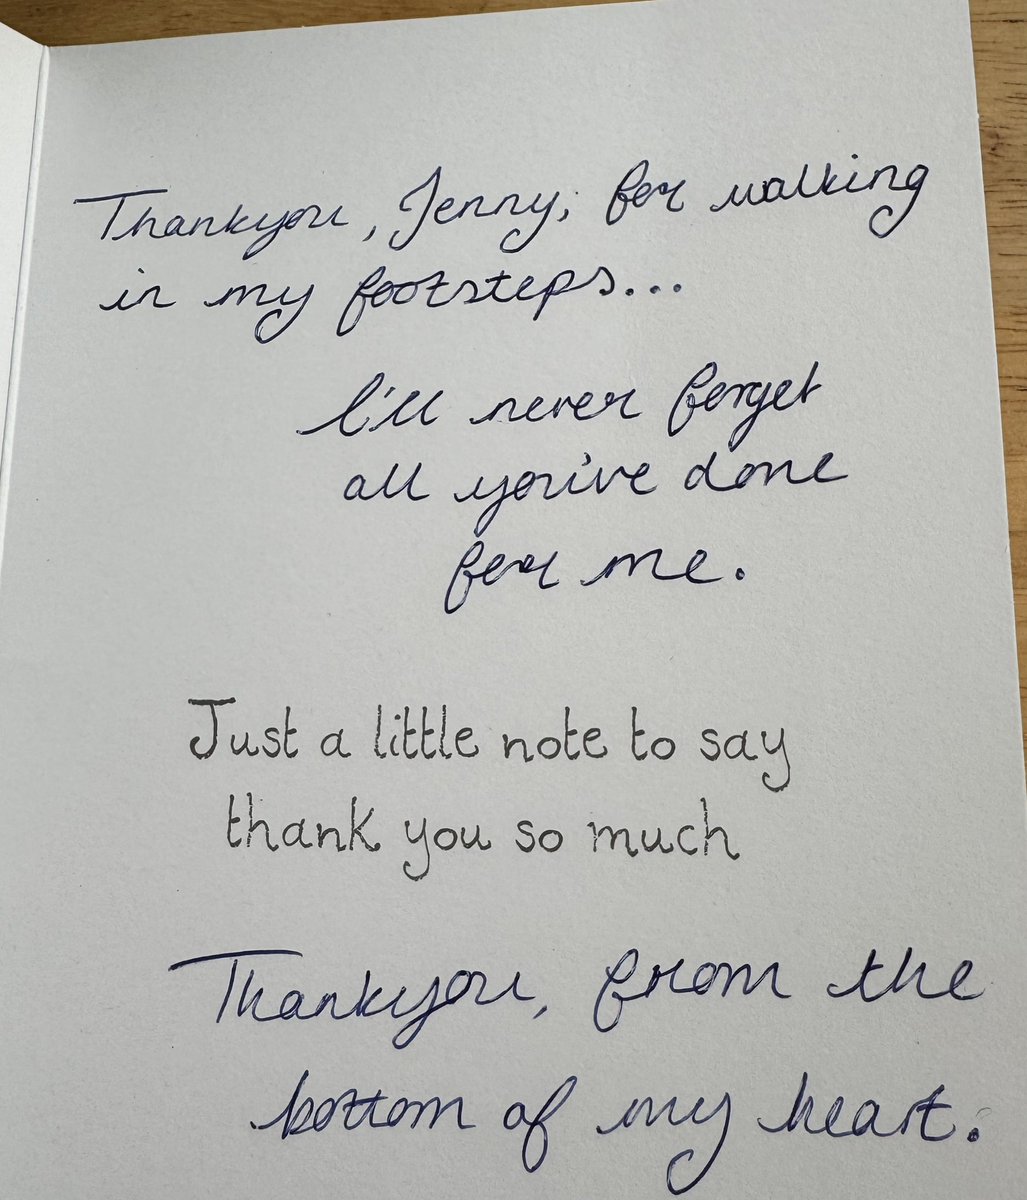 Thankyou, Jenny, for walking
in my footsteps...
I'll never forget
all you've done
for me.
Just a little note to say
thank you so much
Thankyou, from the
bottom of my heart.